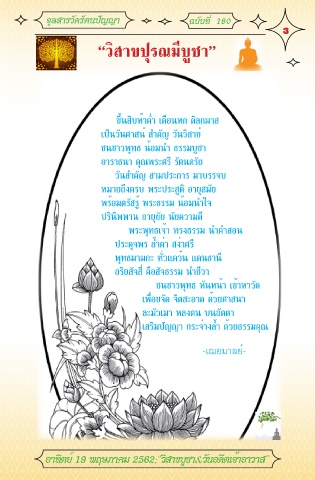 จุลสารวัดรัตนปัญญา
ฉบับที่ 180
3
“วิสาขปุรณมีบูชา”
ขึ้นสิบห้าค่ำ เดือนหก ดิลกมาส
เป็นวันศาสน์ สำคัญ วันวิสาข์
ชนชาวพุทธ น้อมนำ ธรรมบูชา
อาราธนา คุณพระศรี รัตนตรัย
วันสำคัญ สามประการ มาบรรจบ
หมายถึงครบ พระประสูติ อายุสมัย
พร้อมตรัสรู้ พระธรรม น้อมนำใจ
ปรินิพพาน อายุขัย นัยความดี
พระพุทธเจ้า ทรงธรรม นำคำสอน
ประดุจพร ล้ำค่า สง่าศรี
พุทธมามกะ ทั่วแคว้น แดนธานี
อริยสัจสี่ คือสัจธรรม นำชีวา
ชนชาวพุทธ หันหน้า เข้าหาวัด
เพื่อขจัด จิตสะอาด ด้วยศาสนา
ละมัวเมา หลงตน บนอัตตา
เสริมปัญญา กระจ่างล้ำ ด้วยธรรมคุณ
-เฌอมาลย์-
อาทิตย์ 19 พฤษภาคม 2562:"วิสาขบูชา&วันอดีตเจ้าอาวาส"